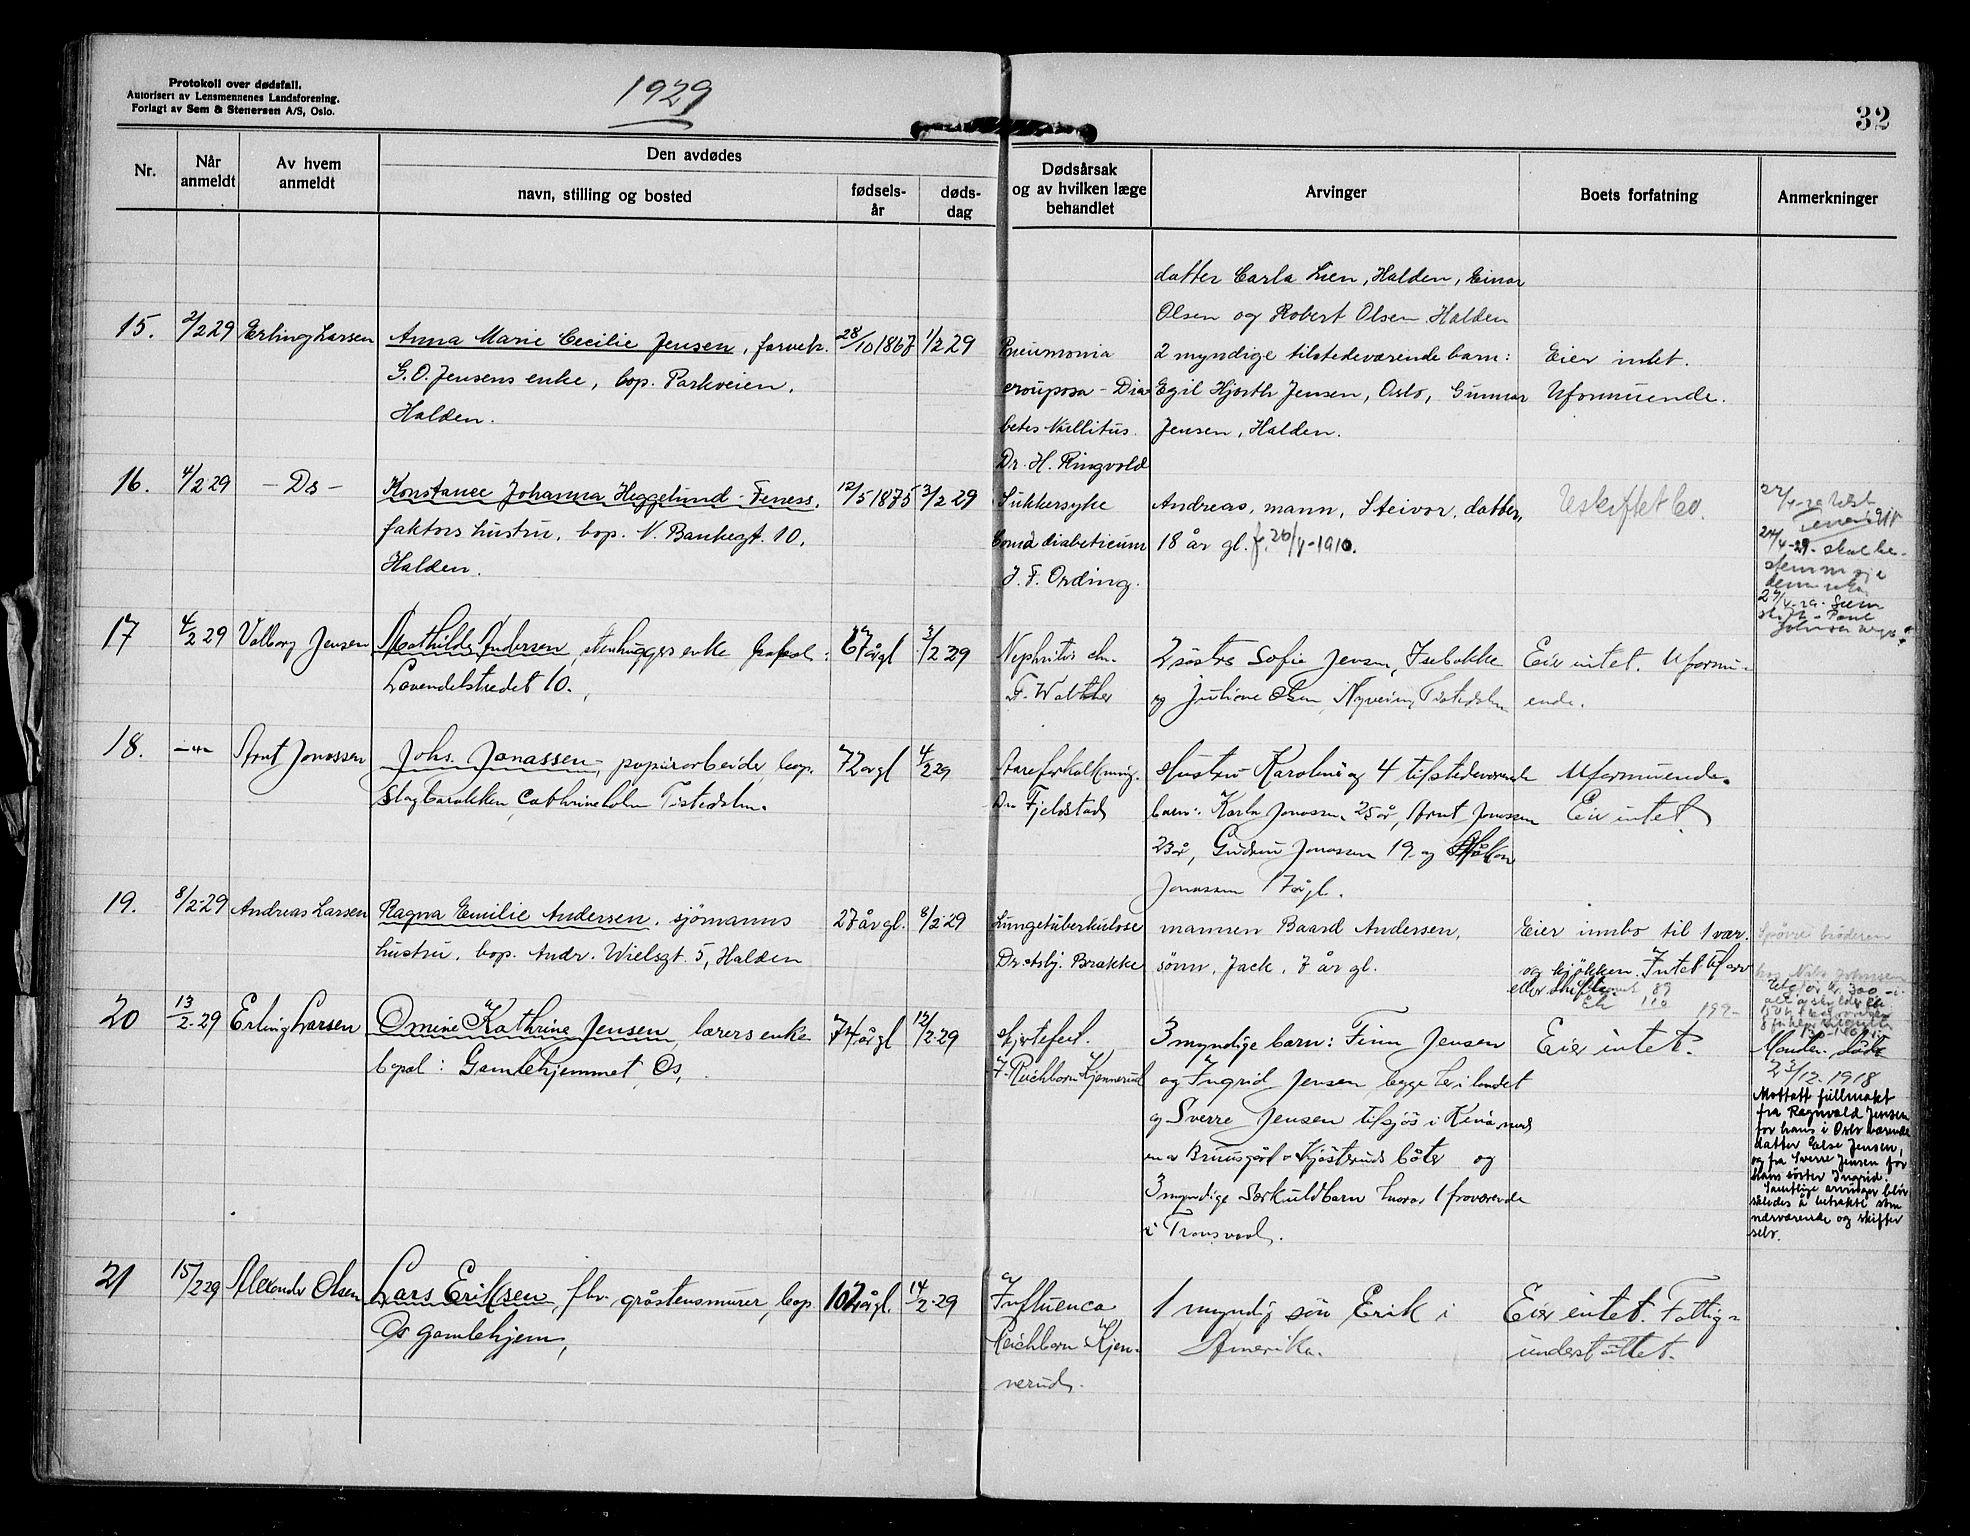 Protokoll over dødsfall.
Autorisert av Lensmennenes Landsforening.
Forlagt av Sem & Stenersen A/S, Oslo.
1929
32
Nr.
Når anmeldt
Av hvem anmeldt
Den avdødes
navn, stilling og bosted
fødsels-år
døds-dag
Dødsårsak og av hvilken læge behandlet
Arvinger
Boets forfatning
Anmerkninger
datter Carla Lien, Halden, Einar
Olsen og Robert Olsen Halden
15. 2/2 29 Erling Larsen Anna Marie Cecilie Jensen, farveh. 28/10 1867 1/2 29
G.O. Jensens enke, bop. Parkveien,
Halden.
Pneumonia
crouposa - Dia
betes Mellitus.
Dr. H. Ringvold
2 myndige tilstedeværende barn:
Egil Hjorth Jensen, Oslo, Gunnar
Jensen, Halden.
Eier intet.
Uformuende.
16. 4/2 29 - Ds - Konstance Johanna Heggelund-Feness,
12/5 1875 3/2 29
faktors hustru, bop. N. Bankegt. 10,
Halden.
Sukkersyke
Coma diabeticum
J. F. Ording.
Andreas, mann, Steivor, datter,
18 år gl. f. 20/4-1910.
Uskiftet bo.
24/4-29 skal be-
stemme sig
17 4/2 29 Valborg Jensen Mathilde Andersen, stenhuggers enke bopal: 67 år gl 3/2 29
Lavendelstredet 10.
Nephritis chr.
F. Walther
2 søstre Sofie Jensen, Isebakke
og Juliane Olsen, Nyveien, Tistedalen
Eier intet. Uformu-
ende.
18. -"- Arnt Jonassen Johs. Jonassen, papirarbeider, bop. 72 år gl 4/2 29
Slagbarakken, Cathrineholm Tistedalen.
Aareforkalkning.
Dr. Fjeldstad
Hustru Karoline og 4 tilstedeværende
barn: Karla Jonassen 25 år, Arnt Jonassen
23 år, Gudrun Jonassen 19 og Håkon
Jonassen 17 år gl.
Uformuende.
Eier intet.
19. 8/2-29 Andreas Larsen Ragna Emilie Andersen, sjømanns 27 år gl. 8/2-29
hustru, bop. Andr. Wielsgt. 5, Halden
Lungetuberkulose
Dr. Asbj. Brække
mannen Baard Andersen,
sønn, Jack, 7 år gl.
Eier innbo til 1 vær.
og kjøkken. Intet
eller skifte. 89
110 199-
20 13/2-29 Erling Larsen Omine Kathrine Jensen, lærers enke 74 år gl 12/2-29
bopal: Gamlehjemmet, Os,
Hjertefeil.
F. Reichborn Kjennerud
3 myndige barn: Finn Jensen
og Ingrid Jensen begge her i landet
og Sverre Jensen tilsjøs i Kina med
en av Bruusgård Kjøsteruds båter og
3 myndige særkuldbarn hvorav 1 fraværende
i Transvaal.
Eier intet.
Manden døde
23/12-1918
Mottatt fullmakt
fra Ragnvald Jensen
for hans i Oslo værende
datter Else Jensen,
og fra Sverre Jensen for
hans søster Ingrid.
Samtlige arvinger blir
således å betrakte som
nærværende og skifter
selv.
21 15/2 29 Alexander Olsen Lars Eriksen, fhv. gråstensmurer, bop. 102 år gl. 14/2-29
Os gamlehjem,
Influenca
Reichborn Kjen-
nerud.
1 myndig søn Erik i
Amerika.
Eier intet. Fattig-
understøttet.